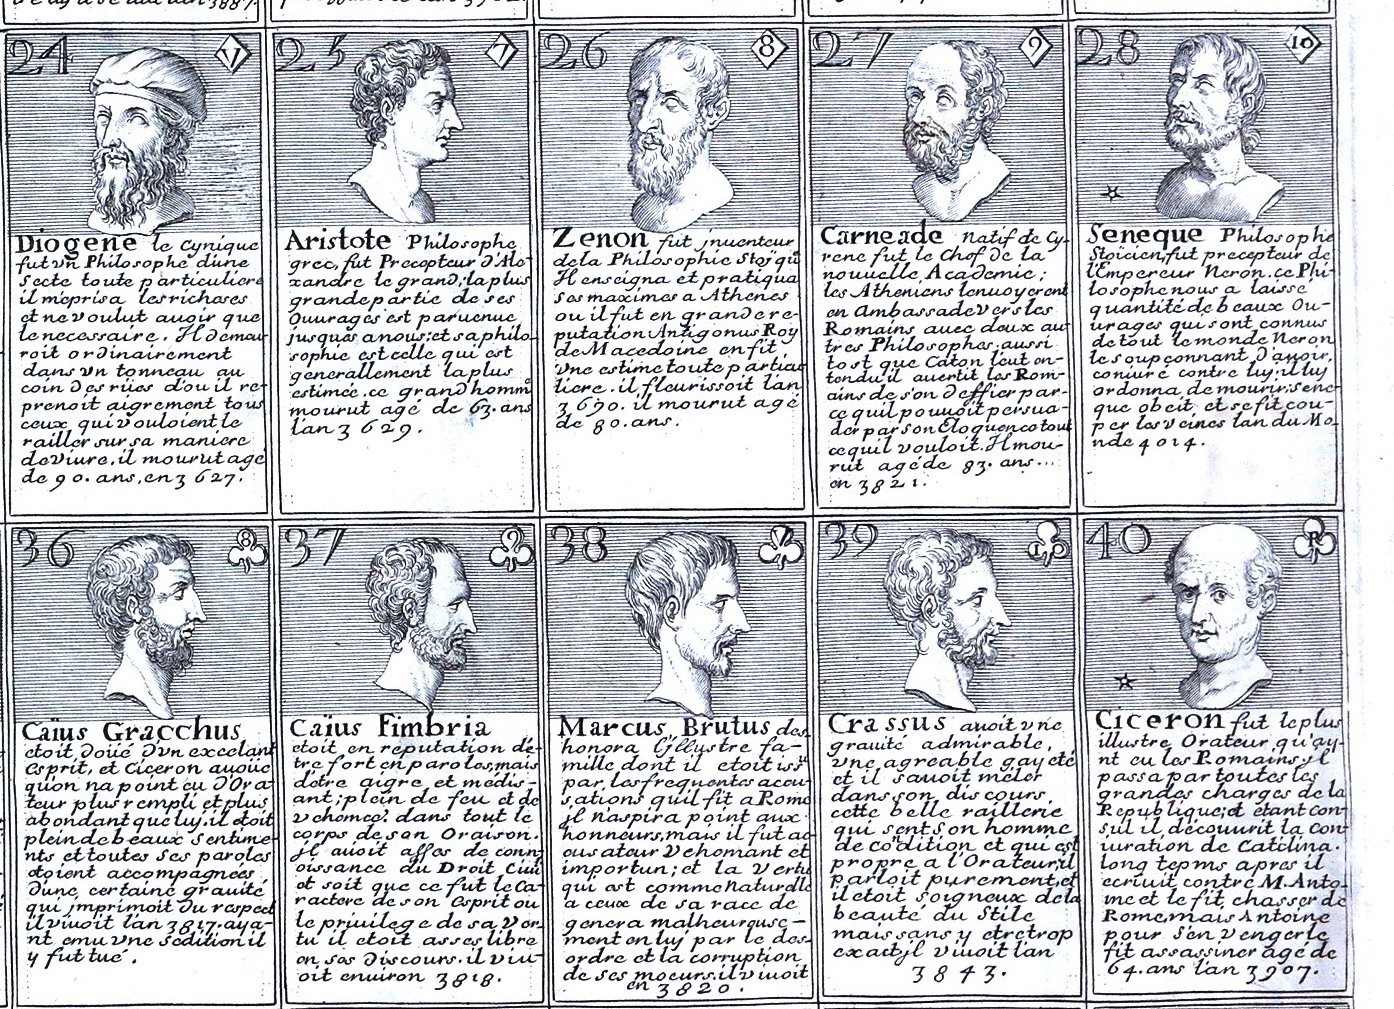 24 V
Diogene le Cynique
fut vn Philosophe d'une
Secte toute particuliere
il meprisa les richases
et ne voulut auoir que
le necessaire. Il demeu
roit ordinairement
dans vn tonneau au
coin des rües d'ou il re-
prenoit aigrement tous
ceux, qui vouloient le
railler sur sa maniere
de viure, il mourut agé
de 90. ans, en 3627.
25 7
Aristote Philosophe
grec, fut Precepteur d'Ale
xandre le grand; la plus
grande partie de ses
Ouurages est paruenue
jusques a nous; et sa philo
sophie est celle qui est
generallement la plus
estimée. ce grand homme
mourut agé de 63. ans
l'an 3629.
26 8
Zenon fut jnuenteur
de la Philosophie Stoj qu
Il enseigna et pratiqua
ses maximes a Athenes
ou il fut en grande re-
putation Antigonus Roy
de Macedoine en fit
vne estime toute partiau
liere. il fleurissoit l'an
3690. il mourut agé
de 80. ans.
27 9
Carneade natif de Cy-
rene fut le Chef de la
nouuelle Academie;
les Atheniens l'enuoyerent
en Ambassade vers les
Romains auec deux au
tres Philosophes; aussi
tost que Caton l'eut en-
tendu il auertit les Rom-
ains de s'en deffier par-
ce qu'il pouuoit persua-
der par son Eloquence tout
ce qu'il vouloit. Il mou-
rut agé de 83. ans...
en 3821.
28 10
Seneque Philosophe
Stoicien, fut precepteur de
l'Empereur Neron. ce Phi-
losophe nous a laissé
quantité de beaux Ou-
urages qui sont connus
de tout le monde Neron
le soupconnant d'auoir
coniuré contre luy; il luy
ordonna de mourir; Sene-
que obeit, et se fit cou-
per les veines l'an du Mo-
nde 4014.
36 8
Caïus Gracchus
etoit doüé d'vn excelant
Esprit, et Ciceron auoüe
qu'on na point eu d'Ora-
teur plus rempli et plus
abondant que luy. il étoit
plein de beaux Sentime-
nts et toutes ses paroles
étoient accompagnées
d'une certaine grauité
qui jmprimoit du respect
il viuoit l'an 3817. aya-
nt emu vne Sedition il
y fut tué.
37 9
Caïus Fimbria
etoit en reputation d'e-
tre fort en paroles, mais
d'étre aigre et medis-
ant; plein de feu et de
vehemece dans tout le
corps de son Oraison.
jl auoit asses de conn
oissance du Droit Ciuil
et soit que ce fut le Ca-
ractere de son Esprit ou
le priuilege de sa Ver-
tu il etoit asses libre
en ses Discours. il viu-
oit enuiron 3818.
38 V
Marcus Brutus des-
honora l'jllustre fa-
mille dont il etoit iss
par les frequentes accu
sations qu'il fit a Rome
jl n'aspira point aux
honneurs, mais il fut ac
cusateur Vehemant et
importun; et la Vertu
qui est comme Naturelle
a ceux de sa race de-
genera malheureuse-
ment en luy par le des-
ordre et la corruption
de ses moeurs. il viuoit
en 3820.
39 10
Crassus auoit vne
grauité admirable,
vne agreable gayeté
et il sauoit méler
dans son discours
cette belle raillerie
qui sent son homme
de codition et qui est
propre a l'Orateur, il
parloit purement, et
il etoit soigneux de la
beauté du Stile
mais sans y etre trop
exact jl viuoit l'an
3843.
40 R
Ciceron fut le plus
illustre Orateur qu'ay-
nt eu les Romains, jl
passa par toutes les
grandes charges de la
Republique; et étant Con-
sul il decouurit la Con-
iuration de Catelina.
long tepms apres il
ecriuit contre M. Anto-
ine et le fit chasser de
Rome, mais Antoine
pour s'en venger le
fit assassiner agé de
64. ans l'an 3907.